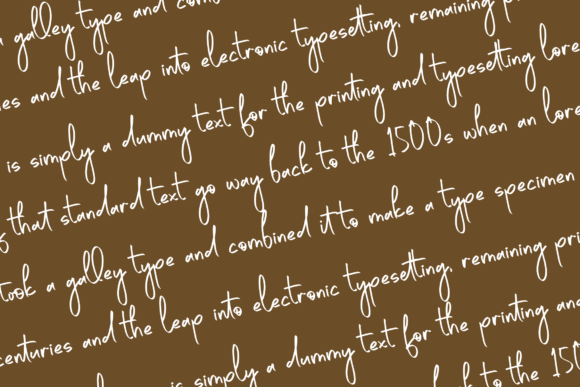 a galley type and com
es and the leap into electronic typesetting. remaining
is simply a dummy text for the printing and typesetting lore
that standard text go way back to the 1500s when an lore
took a galley type and combined it to make a type specimen
centuries and the leap into electronic typesetting. remaining pri
is simply a dummy text for the printing and
to the 150